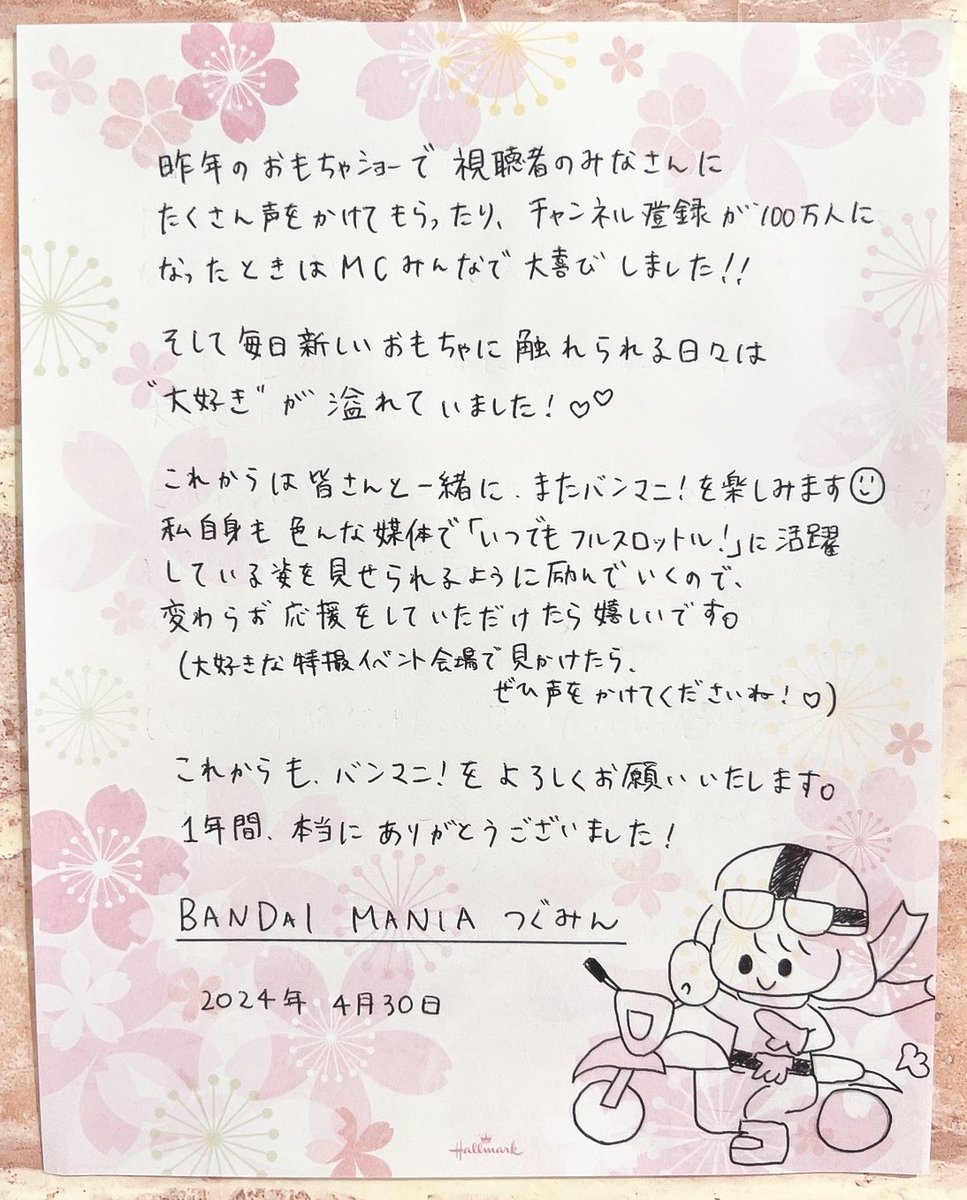 昨年のおもちゃショーで視聴者のみなさんに
たくさん声をかけてもらったり、チャンネル登録が100万人に
なったときはMCみんなで大喜びしました!!
そして毎日新しいおもちゃに触れられる日々は
"大好き"が溢れていました!♡♡
これからは皆さんと一緒に、またバンマニ!を楽しみます☺
私自身も色んな媒体で「いつでもフルスロットル!」に活躍
している姿を見せられるように励んでいくので、
変わらぬ応援をしていただけたら嬉しいです。
(大好きな特撮イベント会場で見かけたら、
ぜひ声をかけてくださいね!♡)
これからも、バンマニ!をよろしくお願いいたします。
1年間、本当にありがとうございました!
BANDAI MANIA つぐみん
2024年 4月30日
Hallmark